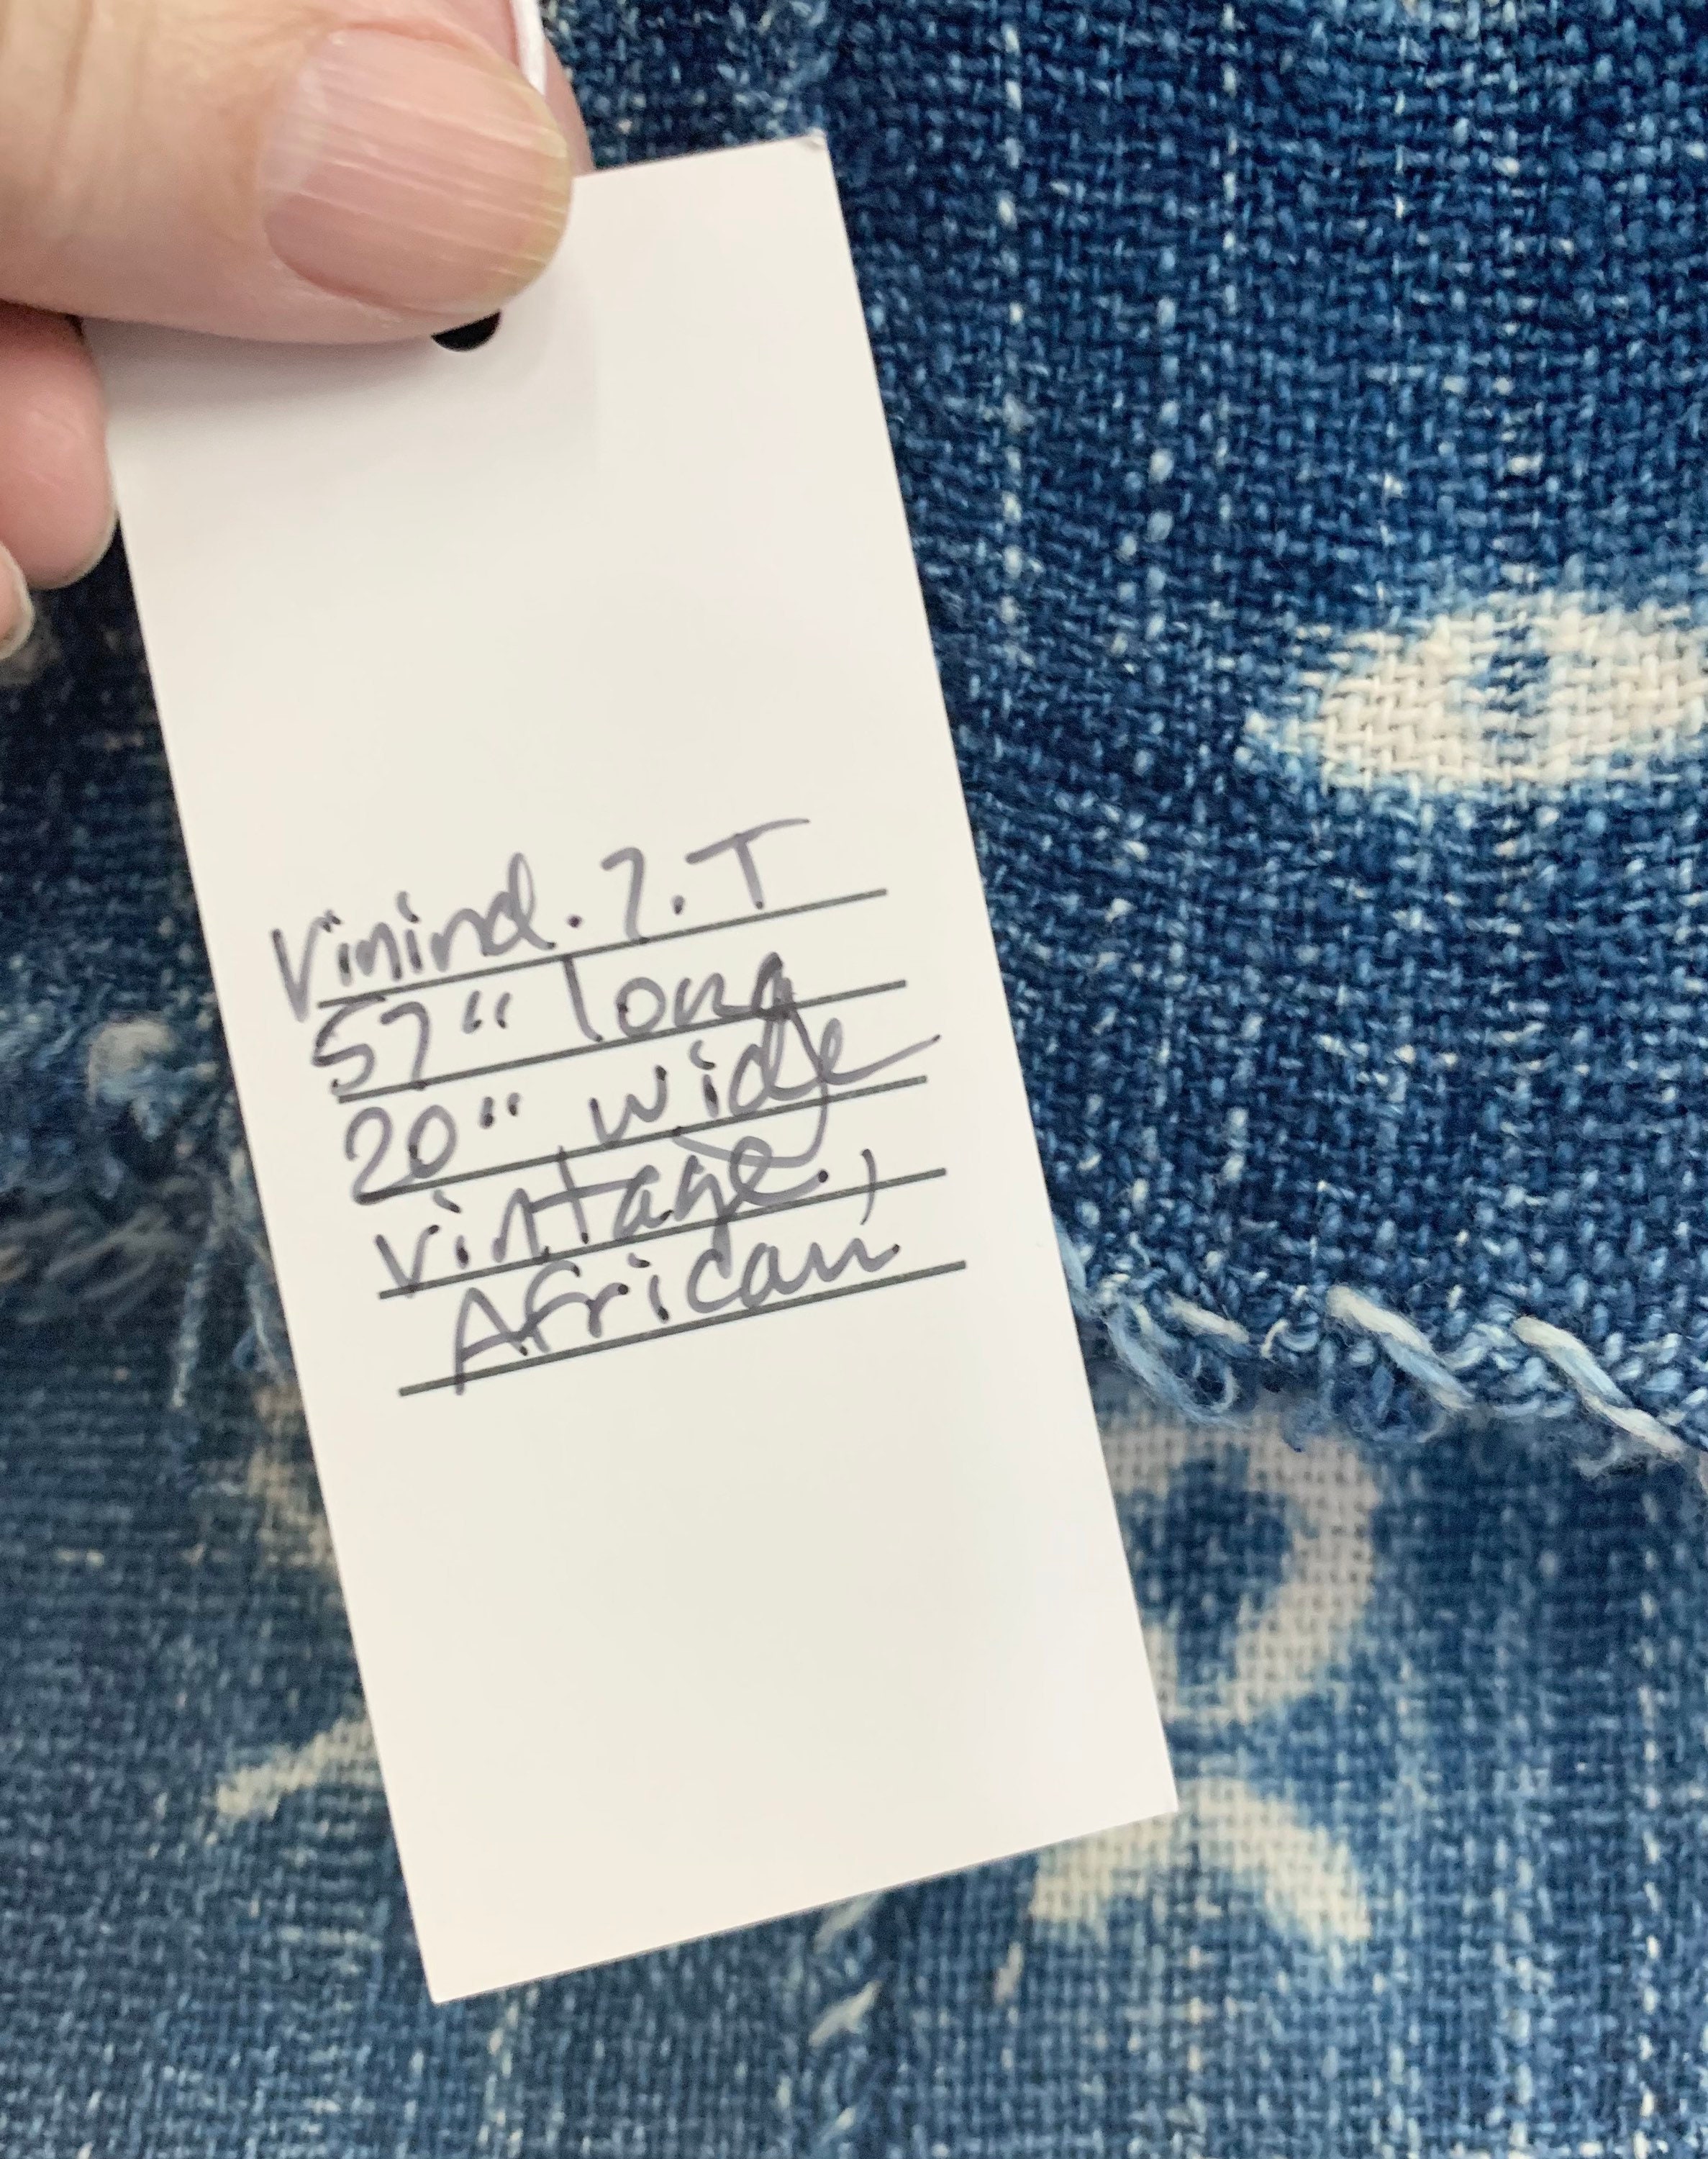 Vinind.7.T
57" long
20" wide
vintage.,
African